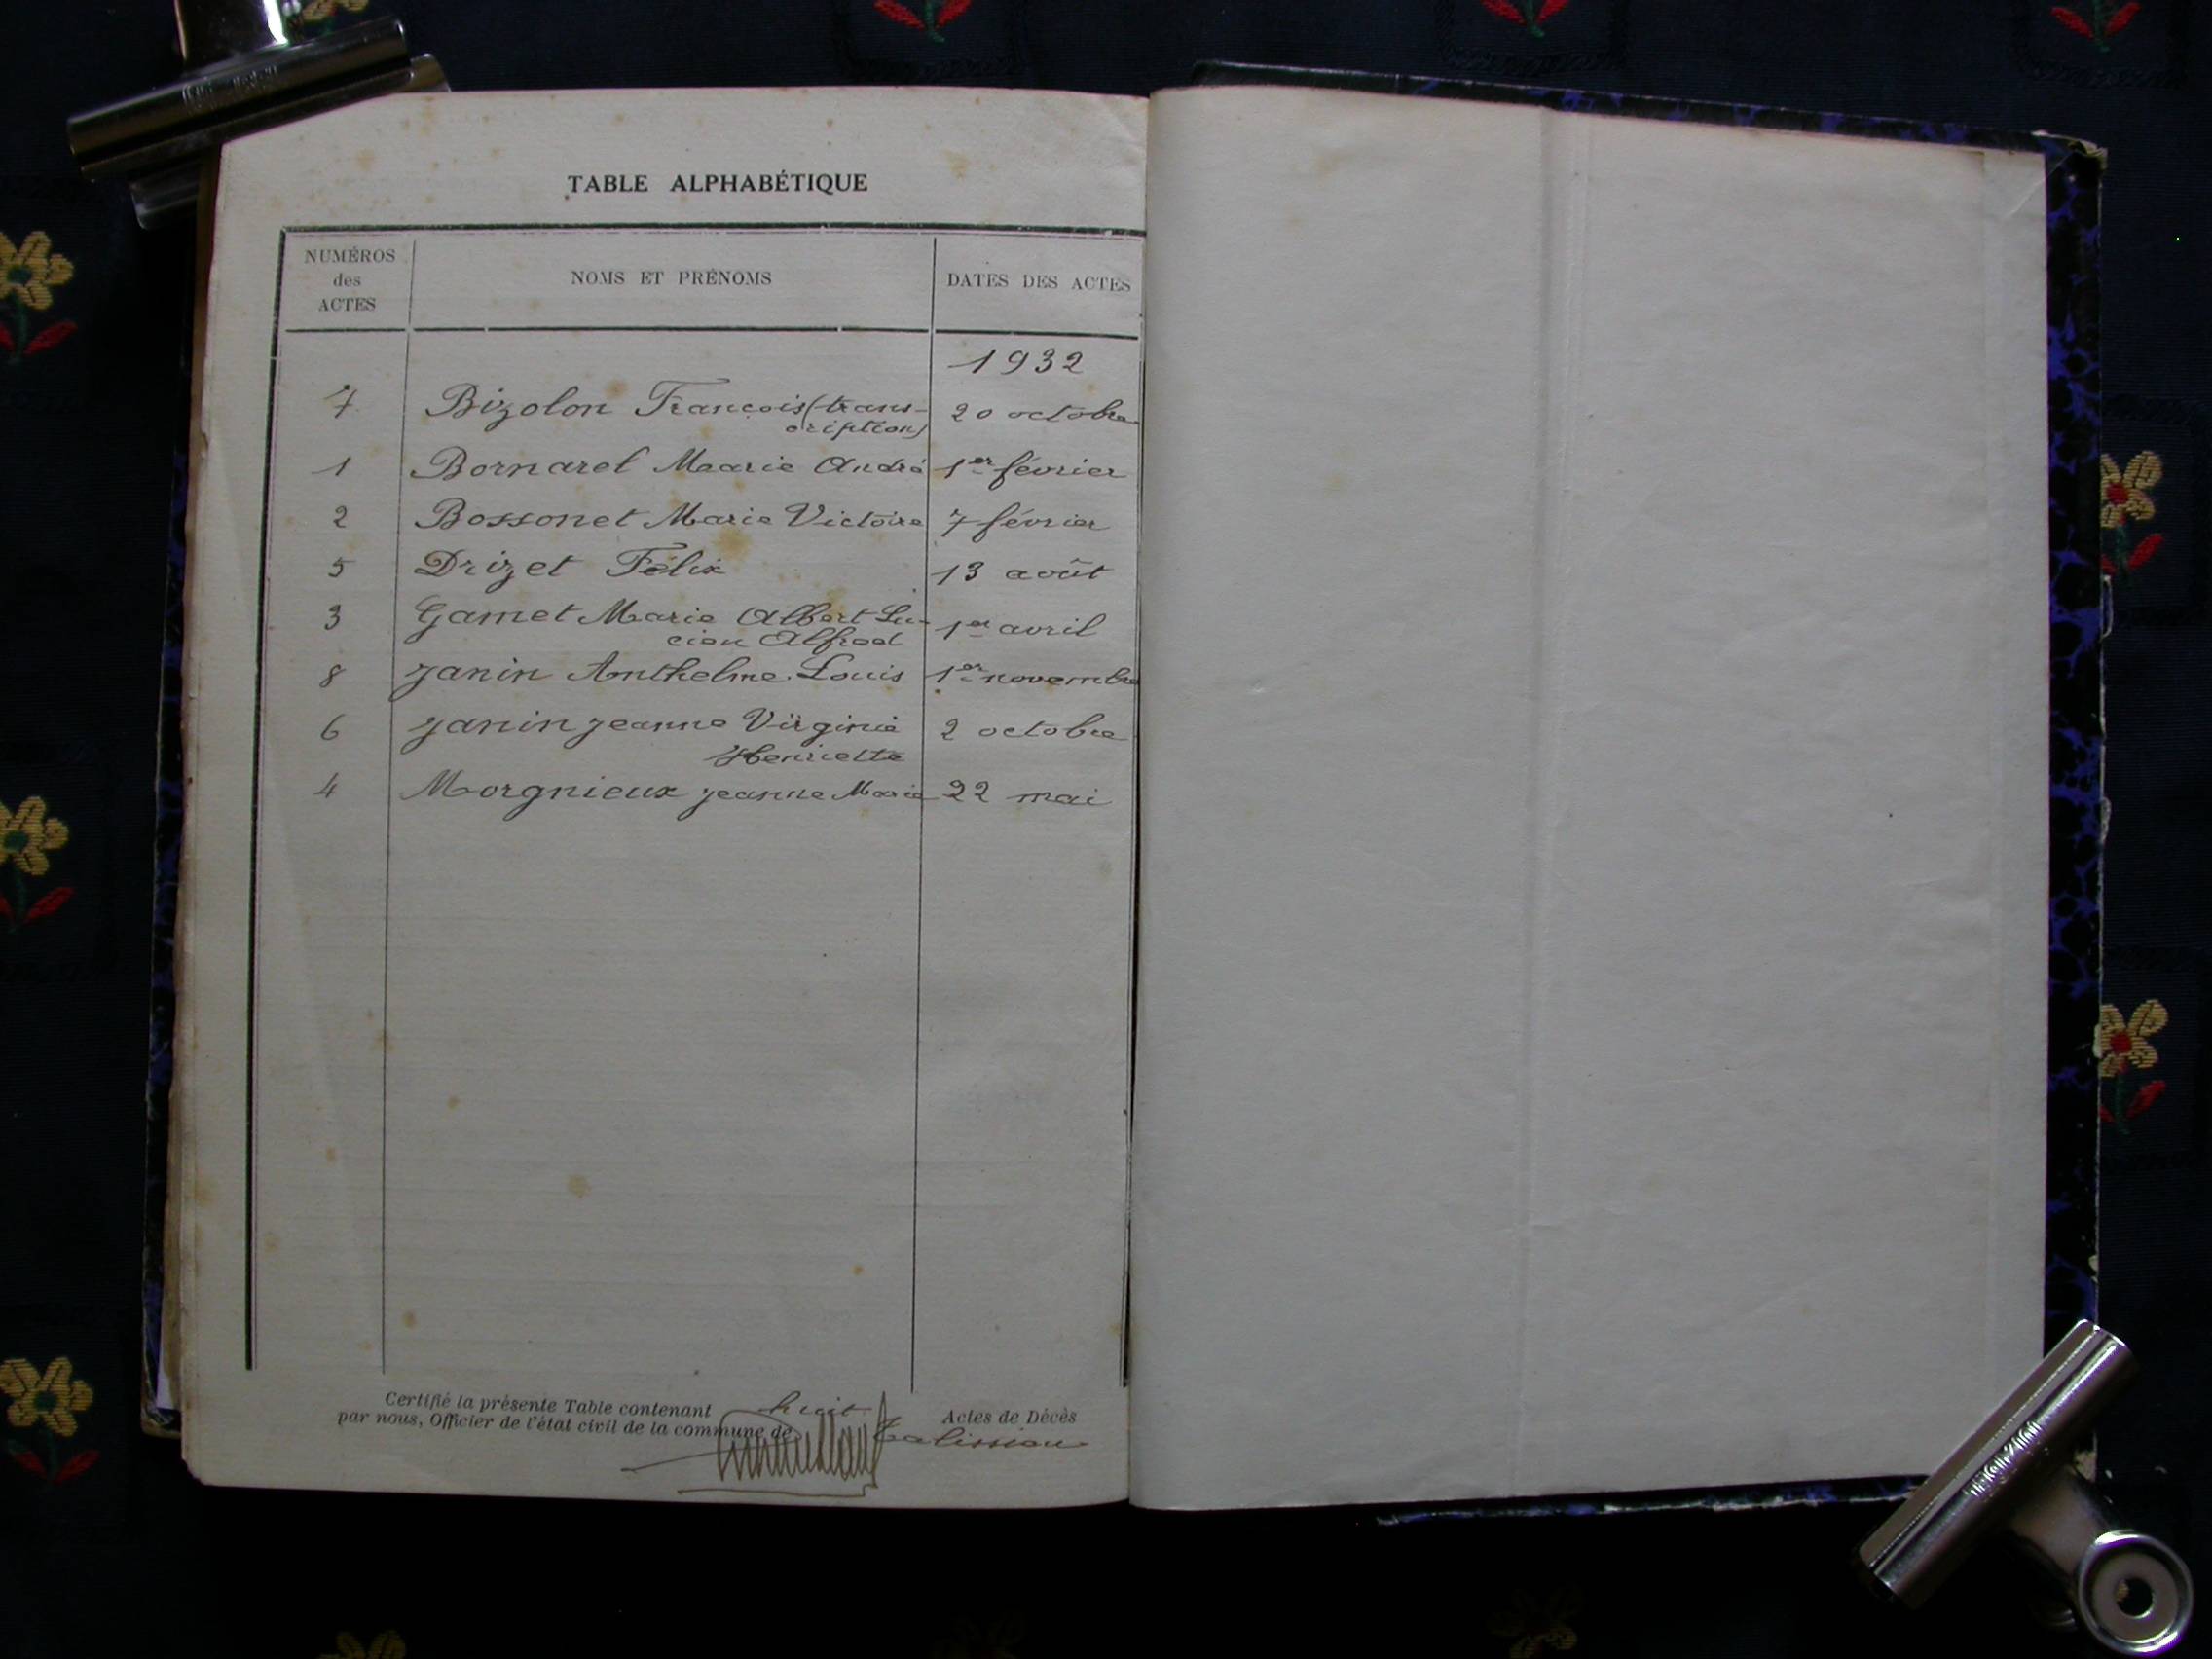 TABLE ALPHABÉTIQUE
NUMÉROS des ACTES NOMS ET PRÉNOMS DATES DES ACTES
1932
7 Bizolon François (trans- 20 octobre
cription)
1 Bornarel Marie André 1er février
2 Bossonet Marie Victoire 7 février
5 Drizet Félix 13 août
3 Gamet Marie Albert Lu- 1er avril
cien Alfred
8 Janin Anthelme Louis 1er novembre
6 Janin Jeanne Virginie 2 octobre
Henriette
4 Morgnieux Jeanne Marie 22 mai
Certifié la présente Table contenant huit Actes de Décès
par nous, Officier de l'état civil de la commune de Talissieu